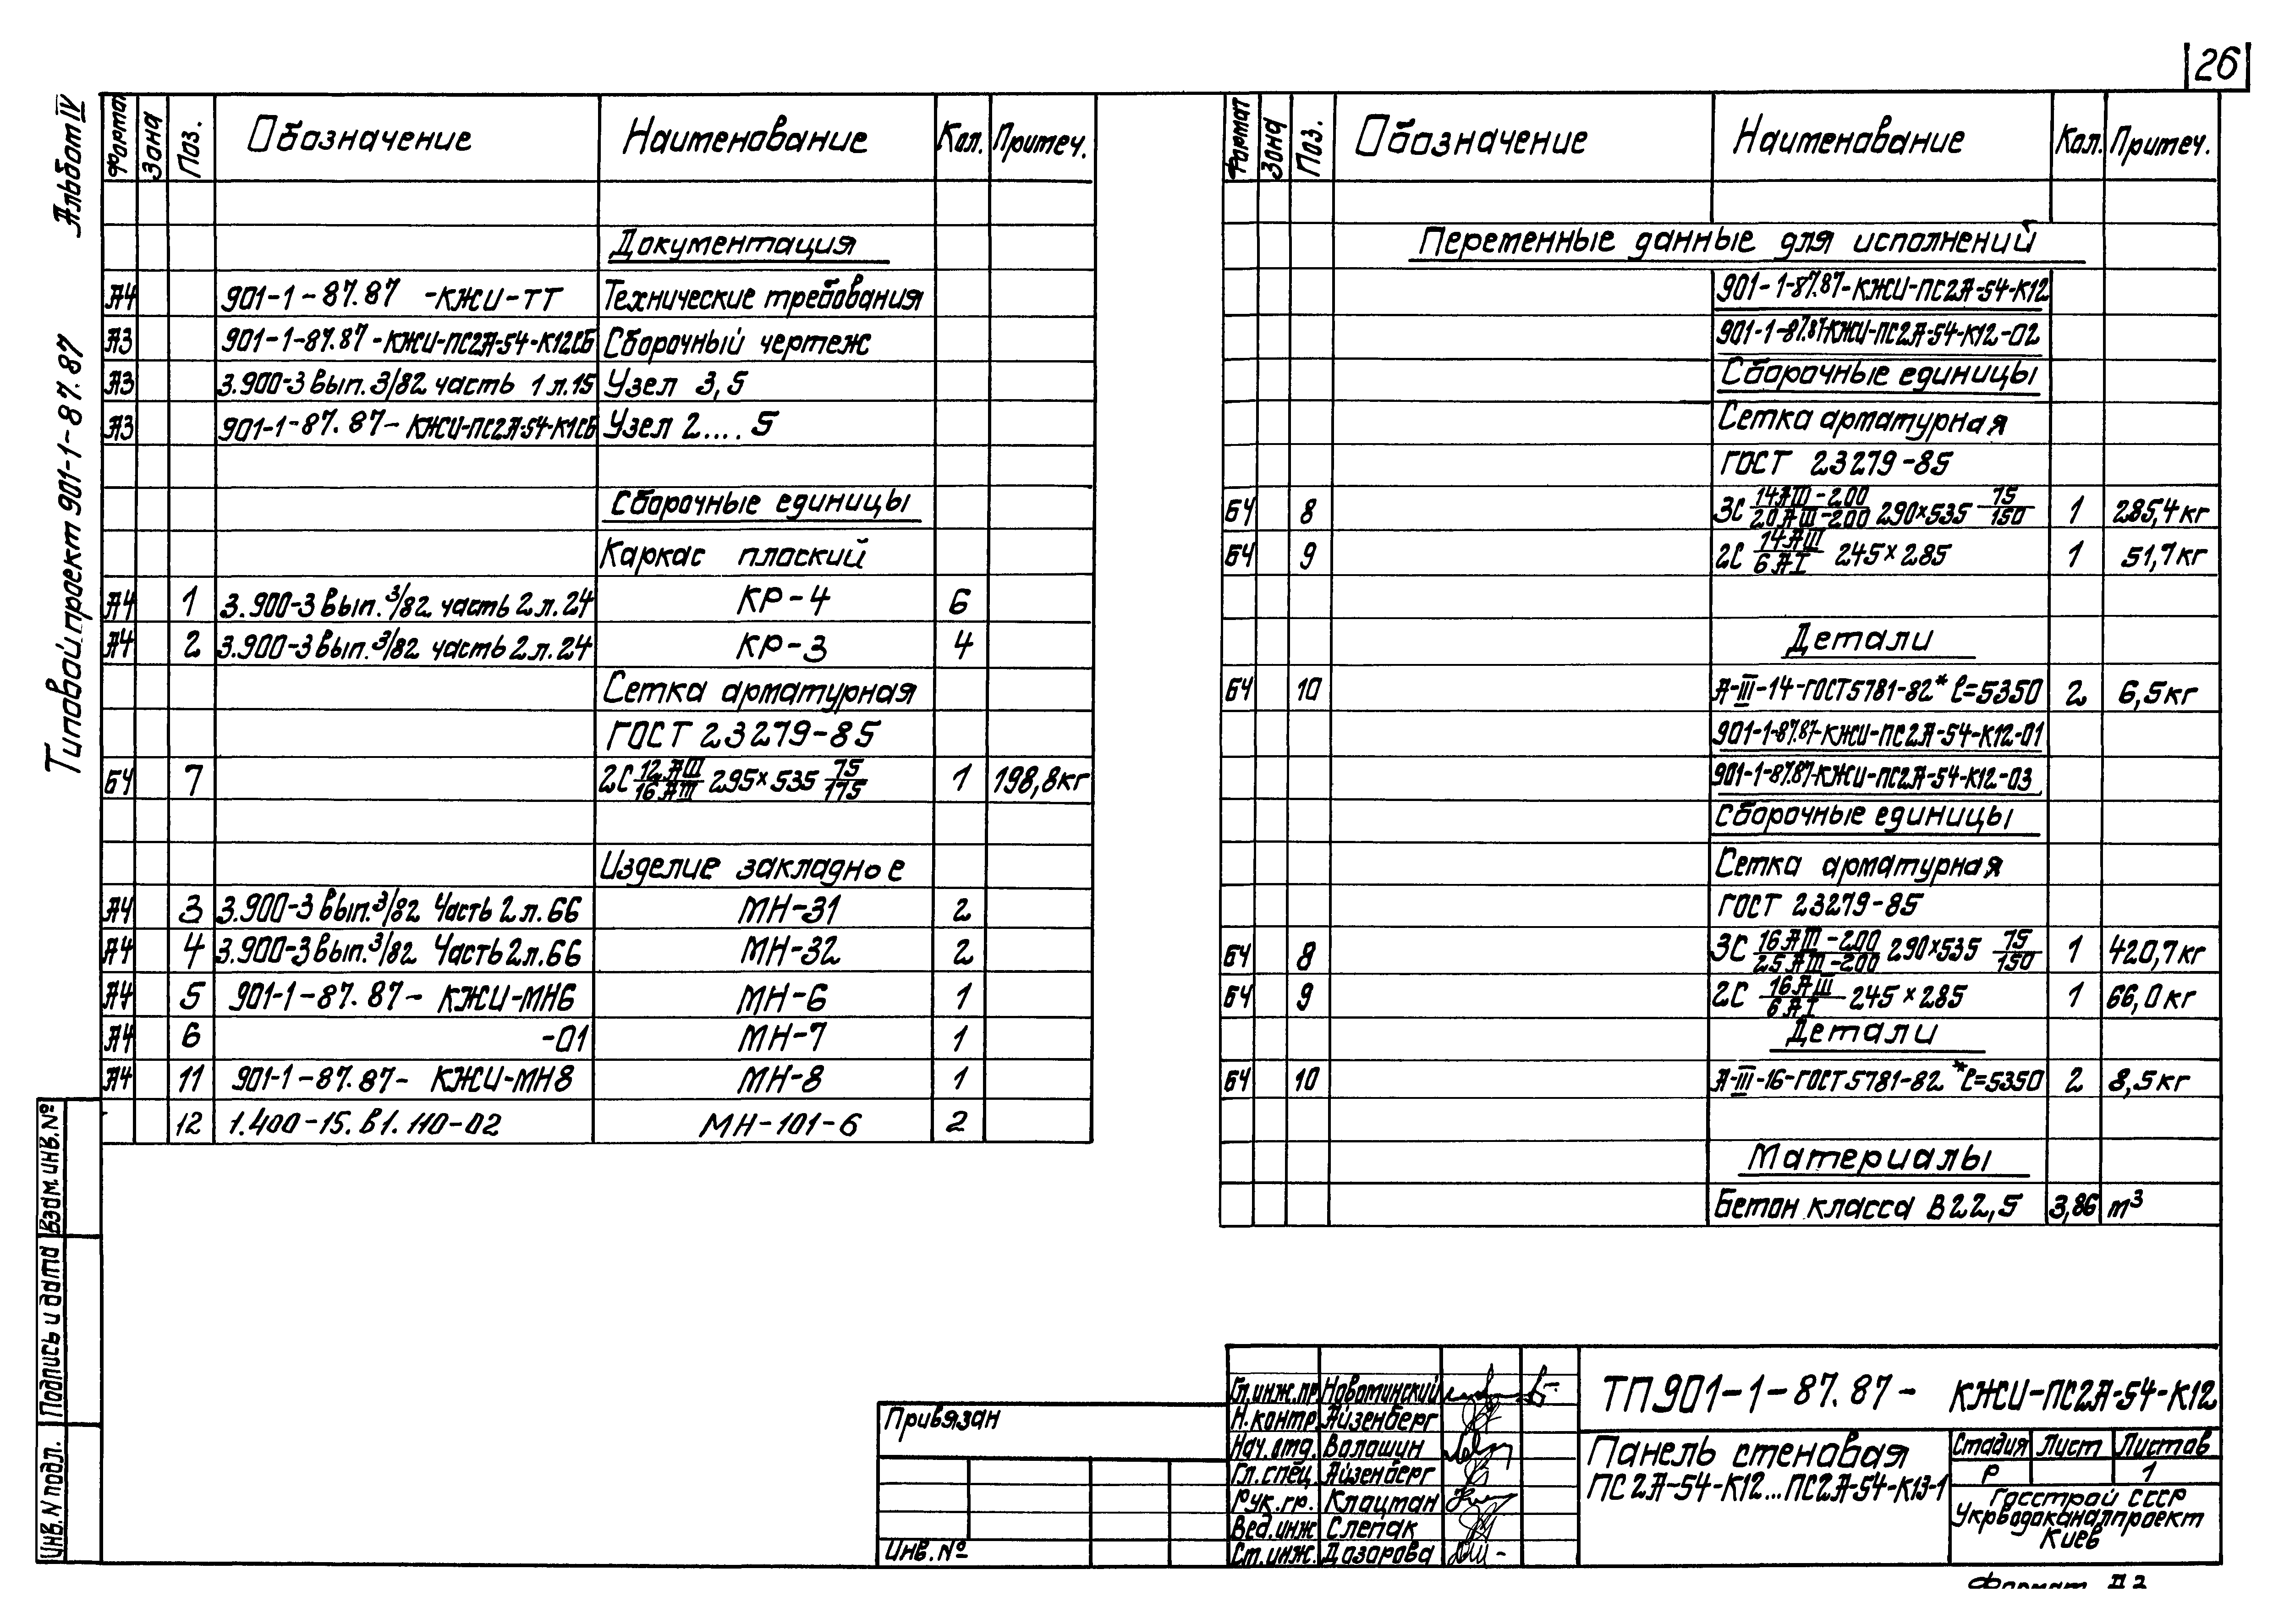 26
Альбом IV
Типовой проект 901-1-87.87
Формат Зона Поз. Обозначение Наименование Кол. Примеч.
Документация
А4 901-1-87.87 -КЖИ-ТТ Технические требования
А3 901-1-87.87-КЖИ-ПС2А-54-К12СБ Сборочный чертеж
А3 3.900-3 вып.3/82 часть 1 л.15 Узел 3,5
А3 901-1-87.87-КЖИ-ПС2А-54-К1СБ Узел 2....5
Сборочные единицы
Каркас плоский
А4 1 3.900-3 вып.3/82 часть 2 л.24 КР-4 6
А4 2 3.900-3 вып.3/82 часть 2 л.24 КР-3 4
Сетка арматурная
ГОСТ 23279-85
БЧ 7 2С 12АIII/16АIII 295×535 75/175 1 198,8кг
Изделие закладное
А4 3 3.900-3 вып.3/82 Часть 2 л.66 МН-31 2
А4 4 3.900-3 вып.3/82 Часть 2 л.66 МН-32 2
А4 5 901-1-87.87- КЖИ-МН6 МН-6 1
А4 6 -01 МН-7 1
А4 11 901-1-87.87- КЖИ-МН8 МН-8 1
12 1.400-15.В1.110-02 МН-101-6 2
Формат Зона Поз. Обозначение Наименование Кол. Примеч.
Переменные данные для исполнений
901-1-87.87-КЖИ-ПС2А-54-К12
901-1-87.87-КЖИ-ПС2А-54-К12-02
Сборочные единицы
Сетка арматурная
ГОСТ 23279-85
БЧ 8 3С 14АIII-200/20АIII-200 290×535 75/150 1 285,4кг
БЧ 9 2С 14АIII/6АI 245×285 1 51,7кг
Детали
БЧ 10 А-III-14-ГОСТ5781-82* ℓ=5350 2 6,5кг
901-1-87.87-КЖИ-ПС2А-54-К12-01
901-1-87.87-КЖИ-ПС2А-54-К12-03
Сборочные единицы
Сетка арматурная
ГОСТ 23279-85
БЧ 8 3С 16АIII-200/25АIII-200 290×535 75/150 1 420,7кг
БЧ 9 2С 16АIII/6АI 245×285 1 66,0кг
Детали
БЧ 10 А-III-16-ГОСТ5781-82* ℓ=5350 2 8,5кг
Материалы
Бетон класса В22,5 3,86 m³
Инв.N подл. Подпись и дата Взам.инв.№
Привязан
Инв.№
Гл.инж.пр. Новоминский
Н.контр. Айзенберг
Нач.отд. Волошин
Гл.спец. Айзенберг
Рук.гр. Клацман
Вед.инж Слепак
Ст.инж. Дозорова
ТП901-1-87.87- КЖИ-ПС2А-54-К12
Панель стеновая
ПС2А-54-К12...ПС2А-54-К13-1
Стадия Лист Листов
Р 1
Госстрой СССР
Укрводоканалпроект
Киев
Формат А2